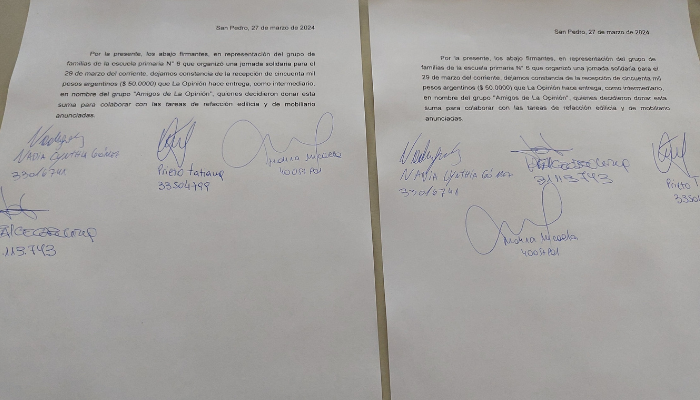 San Pedro, 27 de marzo de 2024
Por la presente, los abajo firmantes, en representación del grupo de
familias de la escuela primaria N° 6 que organizó una jornada solidaria para el
29 de marzo del corriente, dejamos constancia de la recepción de cincuenta mil
pesos argentinos ($ 50.0000) que La Opinión hace entrega, como intermediario,
en nombre del grupo "Amigos de La Opinión", quienes decidieron donar esta
suma para colaborar con las tareas de refacción edilicia y de mobiliario
anunciadas.
NADIA CYNTHIA GÓMEZ
33016741
Prieto Tatiana
33504799
Molina Micaela
.113.743
San Pedro, 27 de marzo de 2024
Por la presente, los abajo firmantes, en representación del grupo de
familias de la escuela primaria N° 6 que organizó una jornada solidaria para el
29 de marzo del corriente, dejamos constancia de la recepción de cincuenta mil
pesos argentinos ($ 50.0000) que La Opinión hace entrega, como intermediario,
en nombre del grupo "Amigos de La Opinión", quienes decidieron donar esta
suma para colaborar con las tareas de refacción edilicia y de mobiliario
anunciadas.
NADIA CYNTHIA GÓMEZ
33016741
31.113.743
Prieto T
3350
Molina Micaela